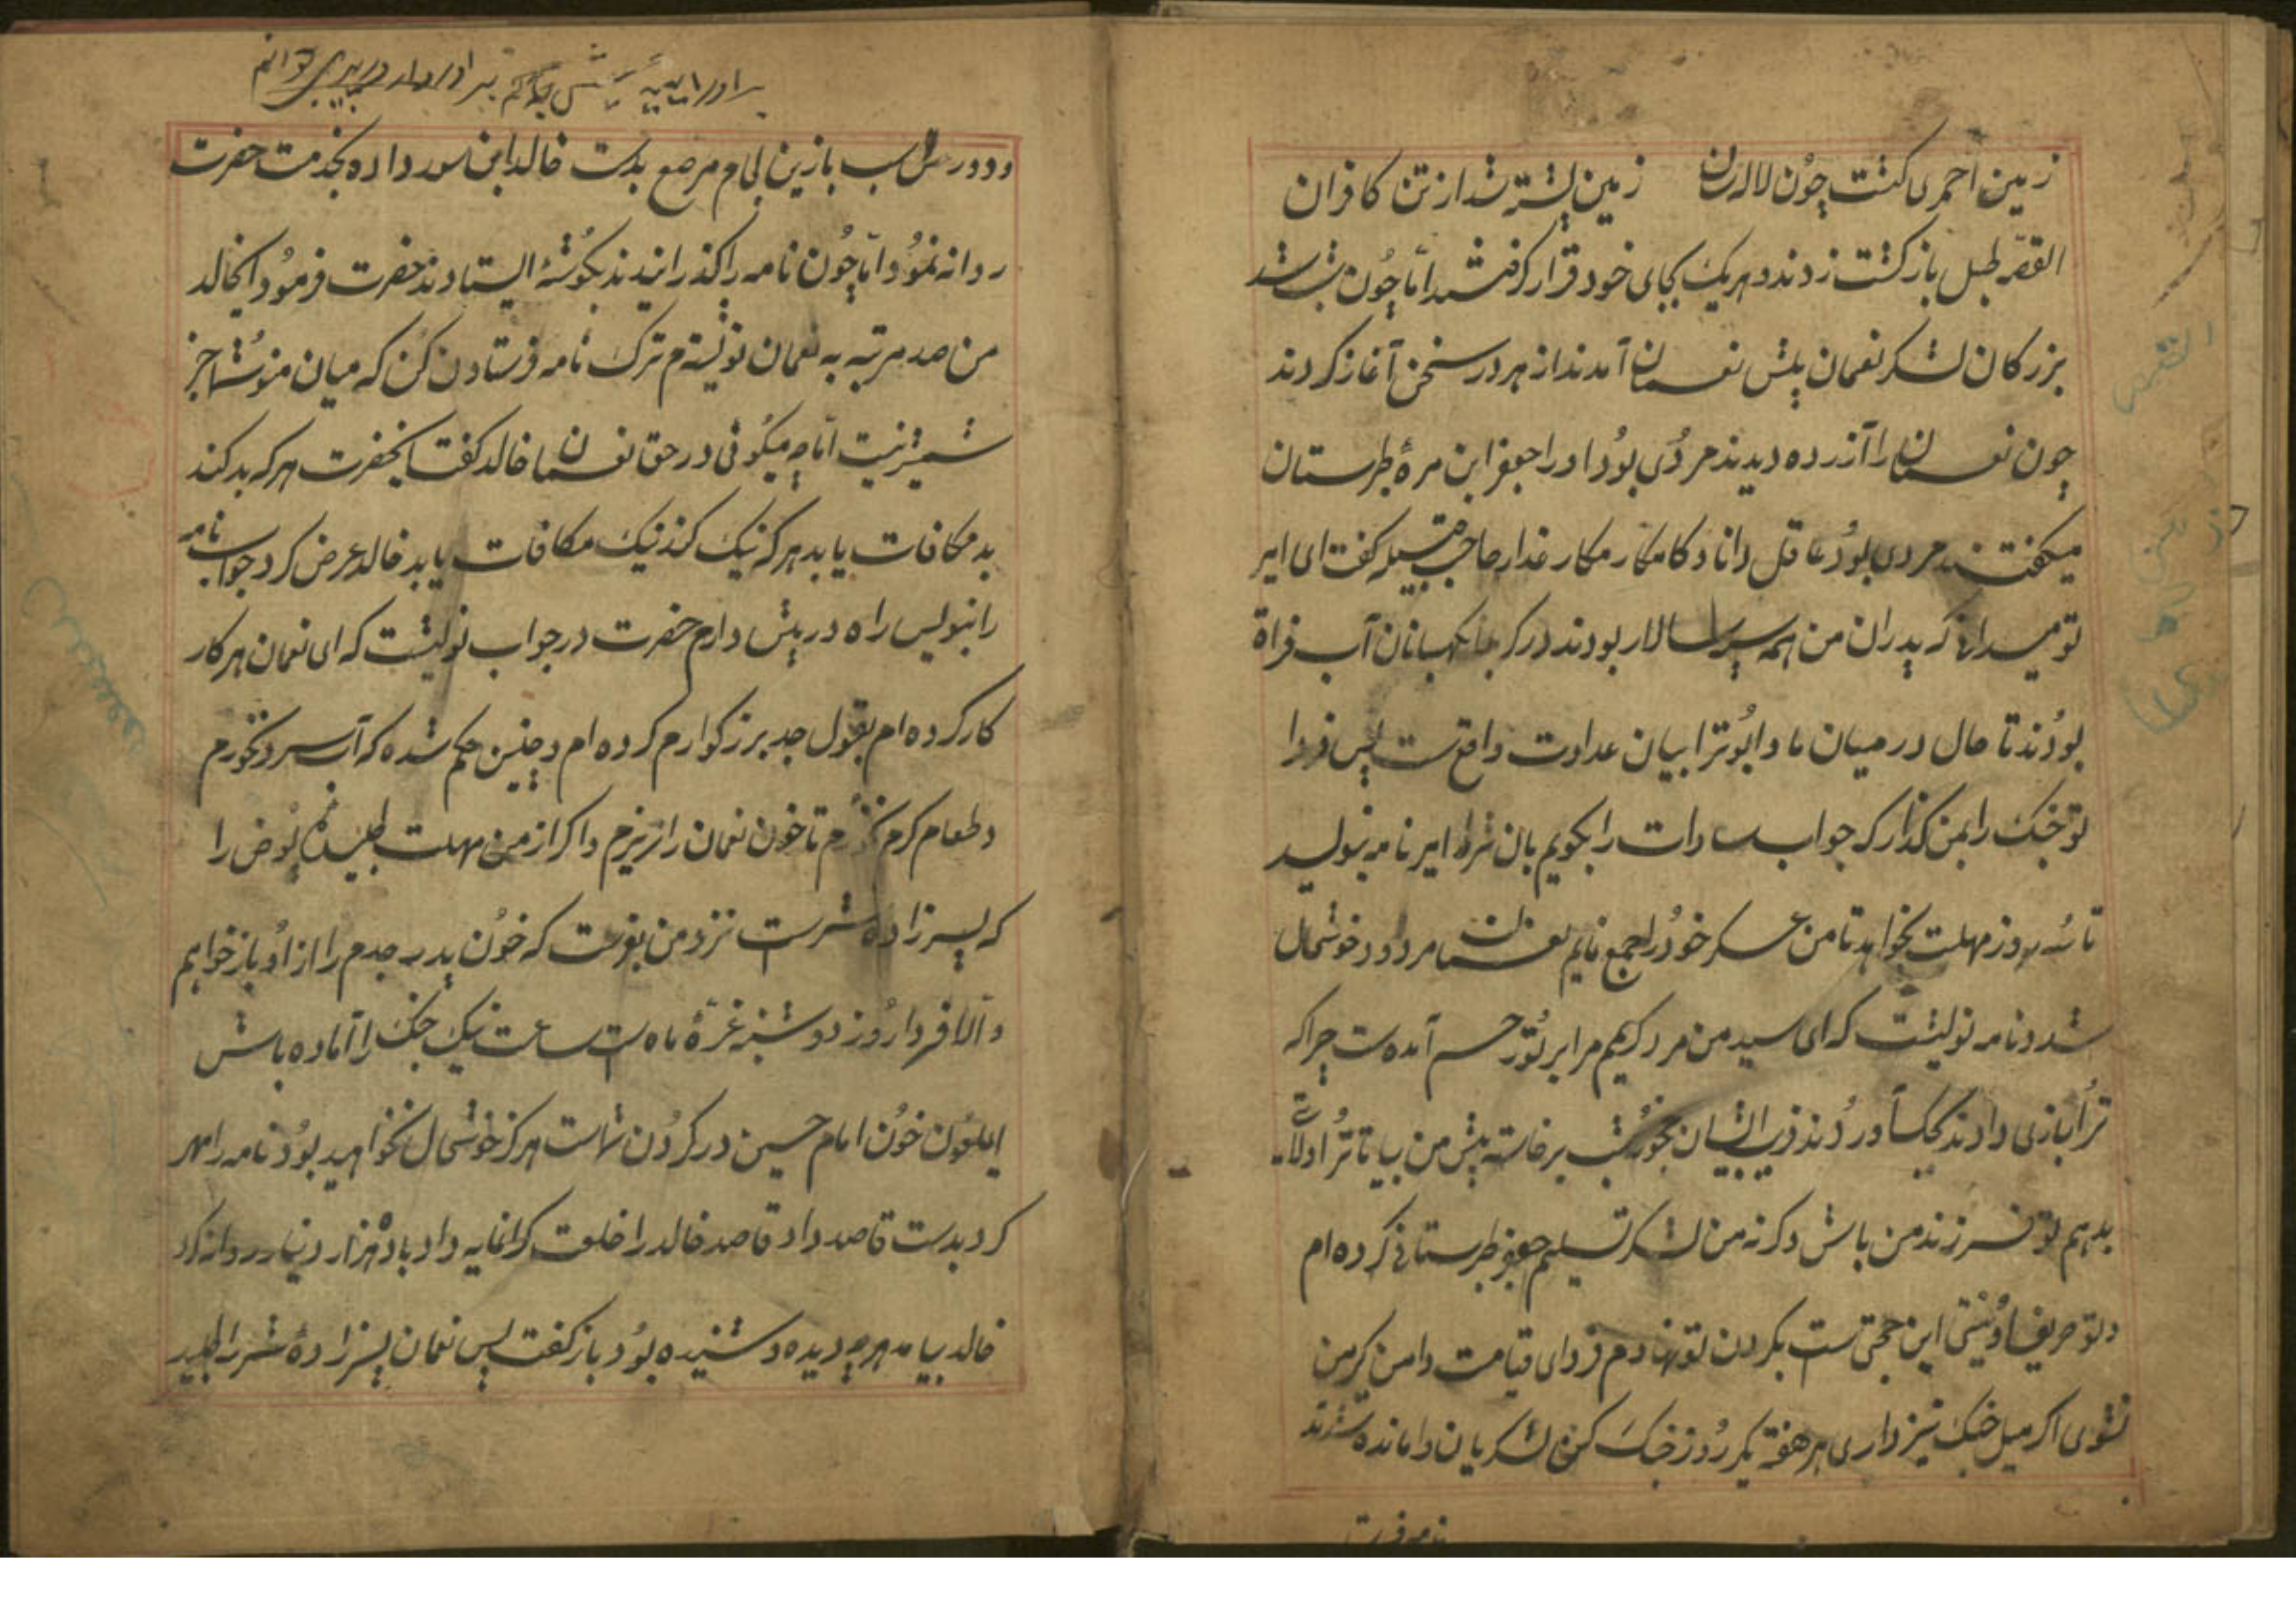 زمین احمری کشت چون لاله زان زمین پشته شد از تن کافران
القصه طبل بازکشت زدند و هریک بجای خود قرار کرفتند اما چون شب شد
بزرکان لشکر نعمان پیش نعمان آمدند از هر در سخن آغاز کردند
چون نعمان را آزرده دیدند مردی بود او را جعفر ابن مرهٔ طبرستان
میکفتند مردی بود عاقل دانا و کامکار مکار غدار صاحب قبیله کفت ای امیر
تو میدانی که پدران من همه سپه سالار بودند در کربلا نکهبانان آب فراة
بودند تا حال در میان ما و ابوترابیان عداوت واقع ست پس فردا
تو جنک را بمن کذار که جواب سادات را بکویم بان شرط امیر نامه بنویسد
تا سه روز مهلت بخواهد تا من عسکر خود را جمع نمایم نعمان مردود خوشحال
شد و نامه نویشت که ای سید من مرد کریمم مرا بر تو رحم آمده ست چرا که
ترا بازی دادند بجکسآوردند فریب ایشان بخورشب برخاسته پیش من بیا تا ترا ولایت
بدهم تو فرزند من باش وکرنه من لشکر تسلیم جعفر طبرستانی کرده ام
و تو حریف او نیستی این حجتی ست بکردن تو نهادم فردای قیامت دامن کیر من
نشوی اکر میل جنک نیز داری هر هفته یکروز جنک کن لشکریان وامانده شدند
نامه فرست
ودو رس اسب بازین لجام مرصع بدست خالد ابن سور داده بخدمت حضرت
روانه نمود اما چون نامه را کذرانیدند بکوشهٔ ایستادند حضرت فرمود ایخالد
من صد مرتبه به نعمان نویشتم ترک نامه فرستادن کن که میان من و شما جز
شمشیر نیست اما چه میکوئی در حق نعمان خالد کفت ایحضرت هر که بد کند
بد مکافات یابد هر که نیک کند نیک مکافات یابد خالد عرض کرد جواب نامه
را بنویس راه در پیش دارم حضرت در جواب نویشت که ای نعمان هر کار
کار کرده ام بقول جد بزرکوارم کرده ام و چنین حکم شده که آب سرد نخورم
و طعام کرم نخورم تا خون نعمان را نریزم و اکر از من مهلت طلبیدهٔ عوض را
که پسرزادهٔ شمرست نزد من بفرست که خون پدر جدم را از او باز خواهم
و آلا فردا روز دوشنبه غرهٔ ماه ست ساعت نیک جنک را آماده باش
ایملعون خون امام حسین در کردن شماست هرکز خوشحال نخواهید بود نامه را مهر
کرد بدست قاصد داد قاصد خالد را خلعت کرانمایه داد با ده هزار دینار روانه کرد
خالد بیامد هر چه دیده و شنیده بود باز کفت پس نعمان پسرزادهٔ شمر را طلبید